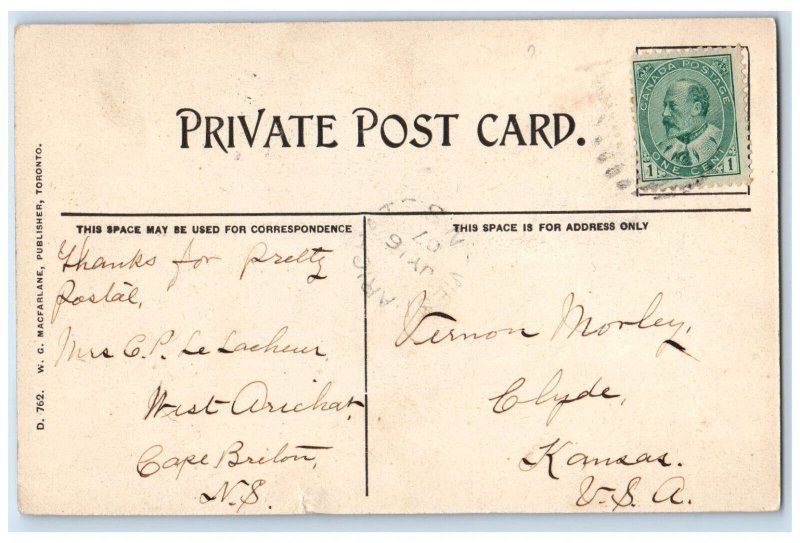 PRIVATE POST CARD.
CANADA POSTAGE
1 ONE CENT 1
THIS SPACE MAY BE USED FOR CORRESPONDENCE
THIS SPACE IS FOR ADDRESS ONLY
Thanks for pretty
Postal,
Mrs C. P. Le Lacheur
West Arichat,
Cape Breton,
N.S.
Vernon Morley,
Clyde,
Kansas.
U.S.A.
JY 16
07
N.S
D. 762. W. G. MACFARLANE, PUBLISHER, TORONTO.